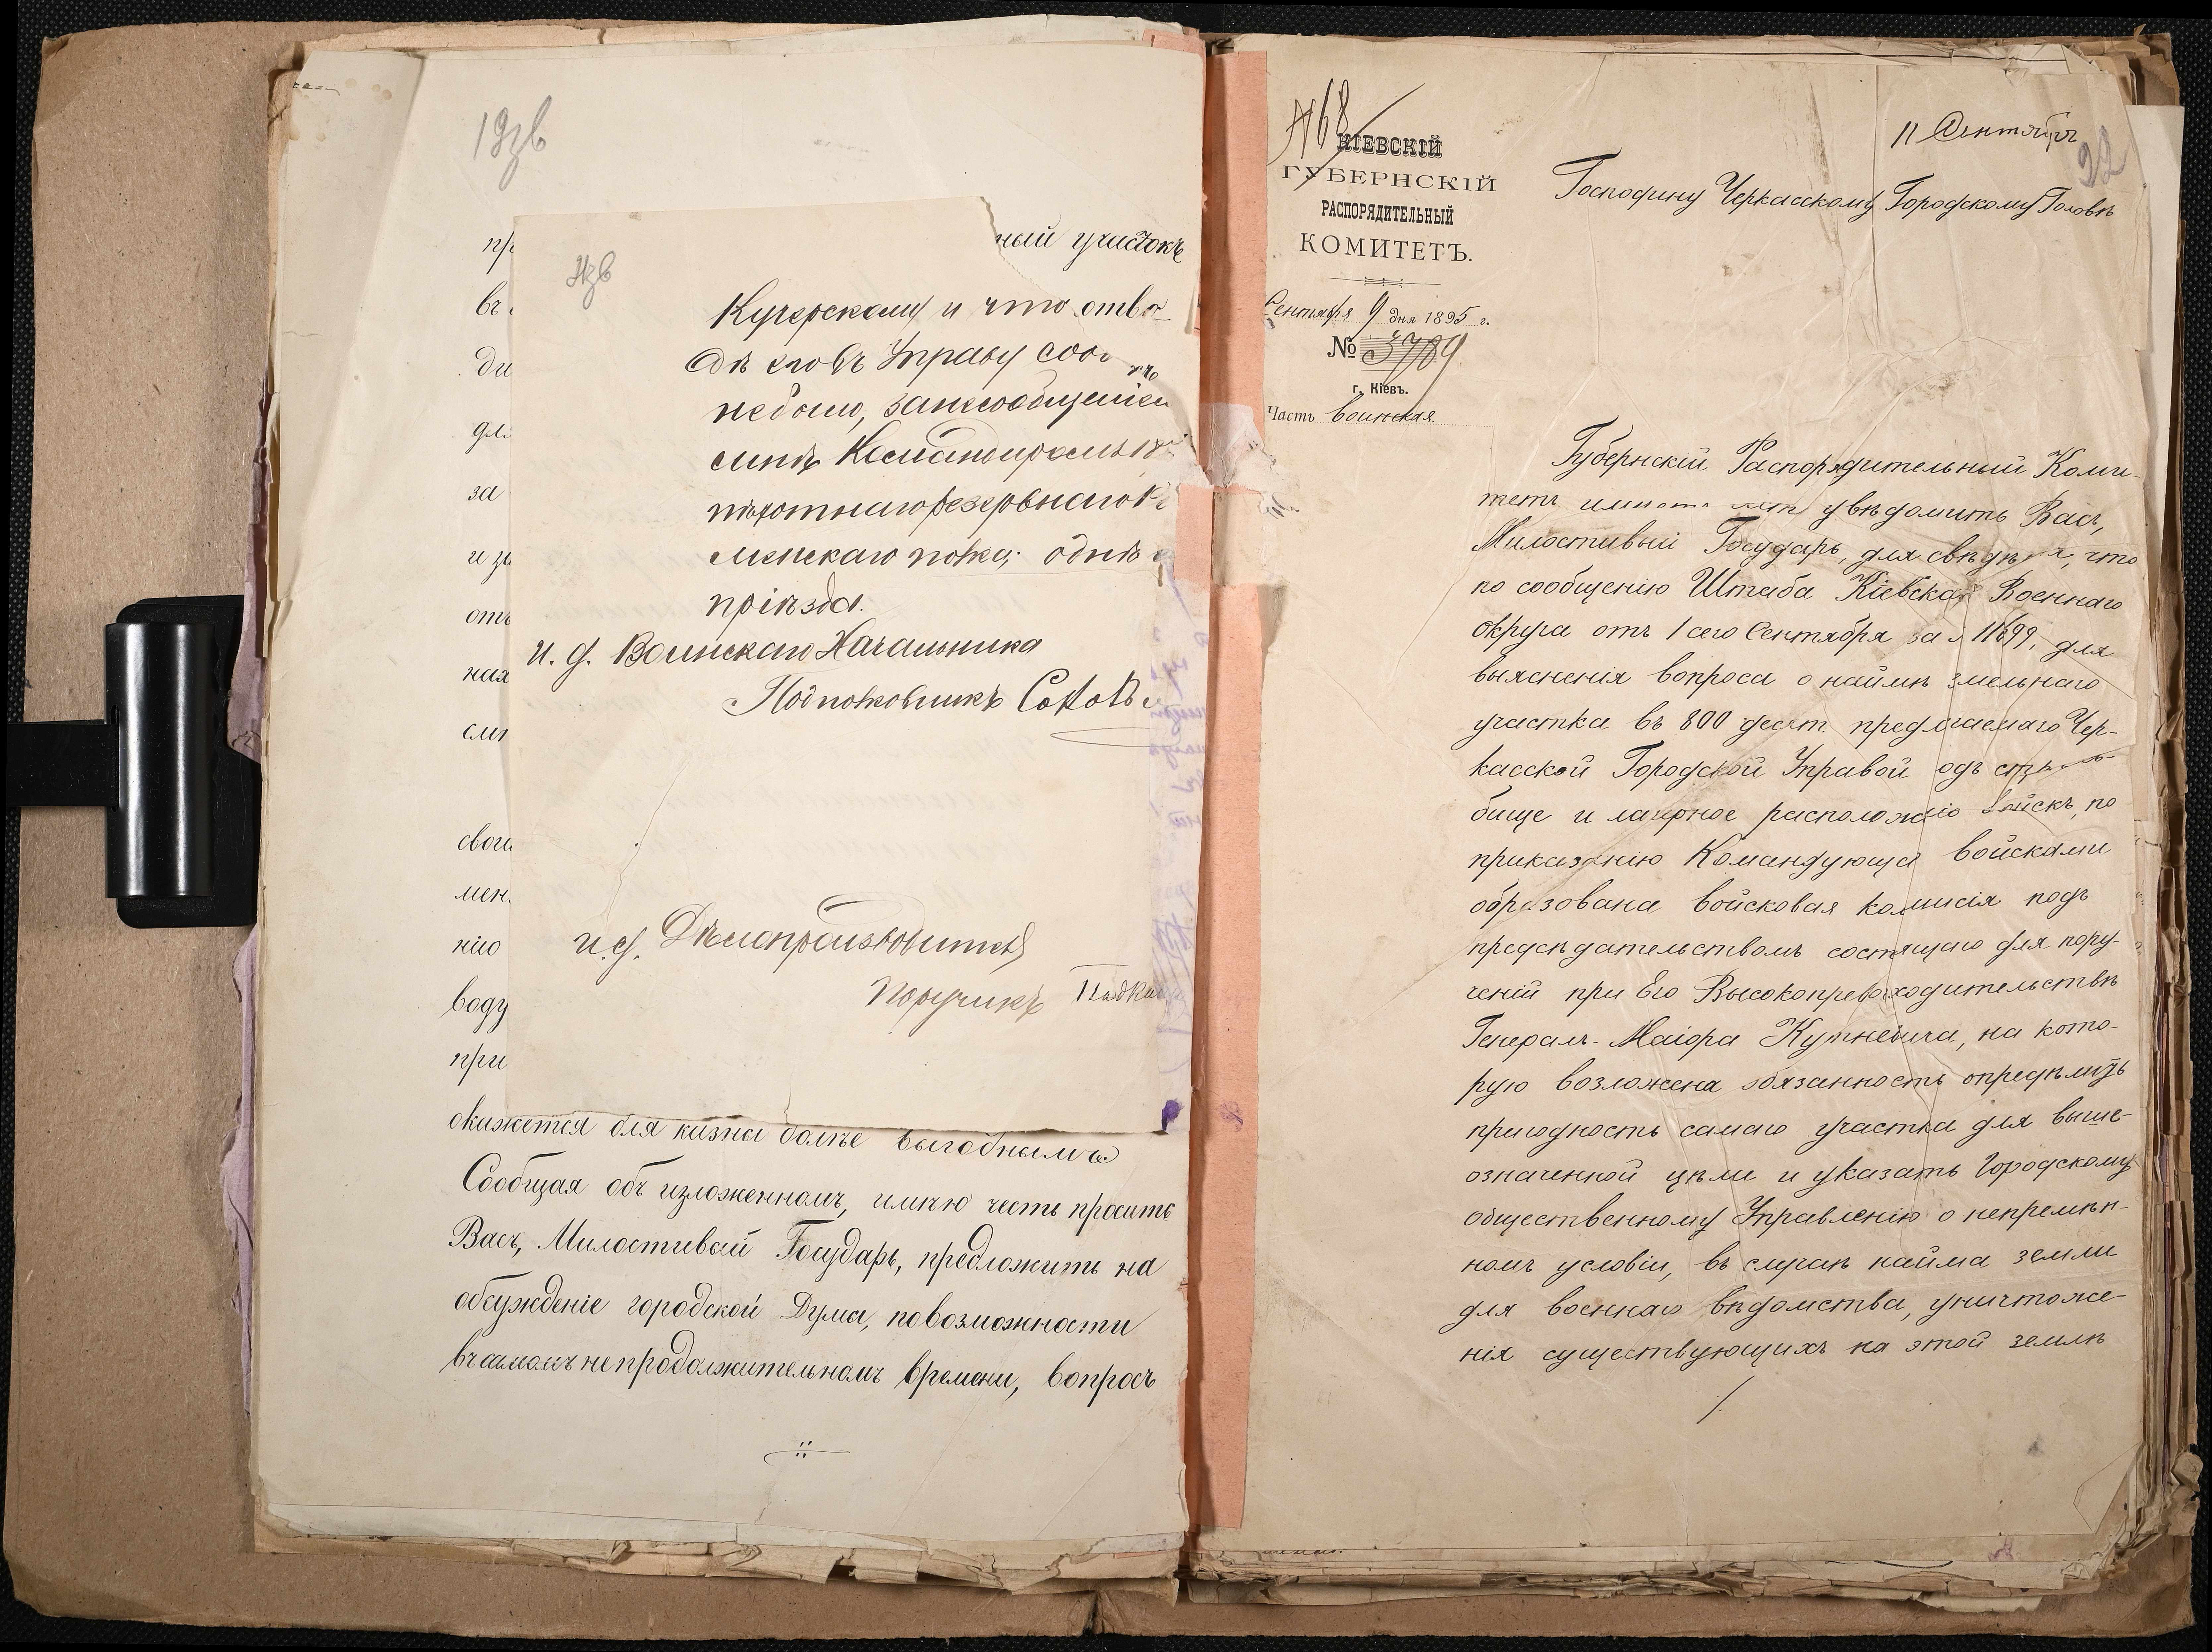 19зв
ный участокъ
въ
ди
для
за
отъ
ная
свои
мен
нію
воду
при
Кучерскому и что отво-
дѣ его въ Управу
не было, за несообщеніем
пѣхотнаго резервнаго
менскаго полка; о днѣ
пріѣзда.
И. д. Воинскаго Начальника
Подполковникъ
и. д. Дѣлопроизводителя
Поручикъ
окажется для казны болѣе выгоднымъ.
Сообщая объ изложенномъ, имѣю честь просить
Васъ, Милостивый Государь, предложить на
обсужденіе городской Думы, по возможности
въ самомъ непродолжительномъ времени, вопросъ
№ 68
КІЕВСКІЙ
ГУБЕРНСКІЙ
РАСПОРЯДИТЕЛЬНЫЙ
КОМИТЕТЪ.
Сентября 9 дня 1895 г.
№ 3789
г. Кіевъ.
Часть воинская.
11 Сентября
22
Господину Черкасскому Городскому Головѣ
Губернскій Распорядительный Коми-
тетъ имѣетъ увѣдомить Васъ,
Милостивый Государь, для свѣдѣнія, что
по сообщенію Штаба Кіевскаго Военнаго
Округа отъ 1 сего Сентября за № 11699, для
выясненія вопроса о наймѣ земельнаго
участка въ 800 десят. предлагаемаго Чер-
касской Городской Управой подъ стрѣль-
бище и лагерное расположеніе войскъ, по
приказанію Командующаго войсками
образована войсковая комисія подъ
предсѣдательствомъ состоящаго для пору-
ченій при Его Высокопревосходительствѣ
Генералъ-Маіора Кутневича, на кото-
рую возложена обязанность опредѣлить
пригодность самаго участка для выше-
означенной цѣли и указать Городскому
общественному Управленію о непремѣн-
номъ условіи, въ случаѣ найма земли
для военнаго вѣдомства, уничтоже-
нія существующихъ на этой землѣ